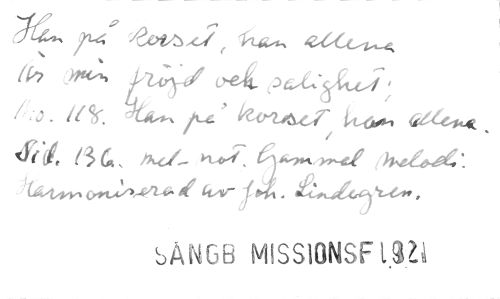 Han på korset, han allena
Är min fröjd och salighet;
No. 118. Han på korset, han allena.
Sid. 136. mel-not. Gammal melodi.
Harmoniserad av Joh. Lindegren.
SÅNGB MISSIONSF 1921